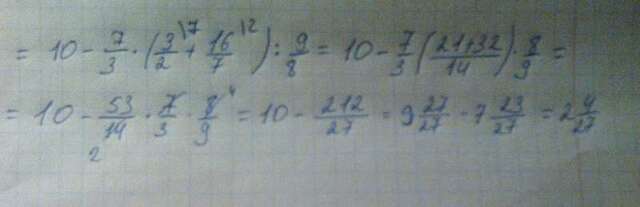 = 10 - 7/3 · (3/2 \7 + 16/7 \2) : 9/8 = 10 - 7/3 (21+32/14) · 8/9 =
= 10 - 53/14 2 · 7/3 · 8/9 4 = 10 - 212/27 = 9 27/27 - 7 23/27 = 2 4/27